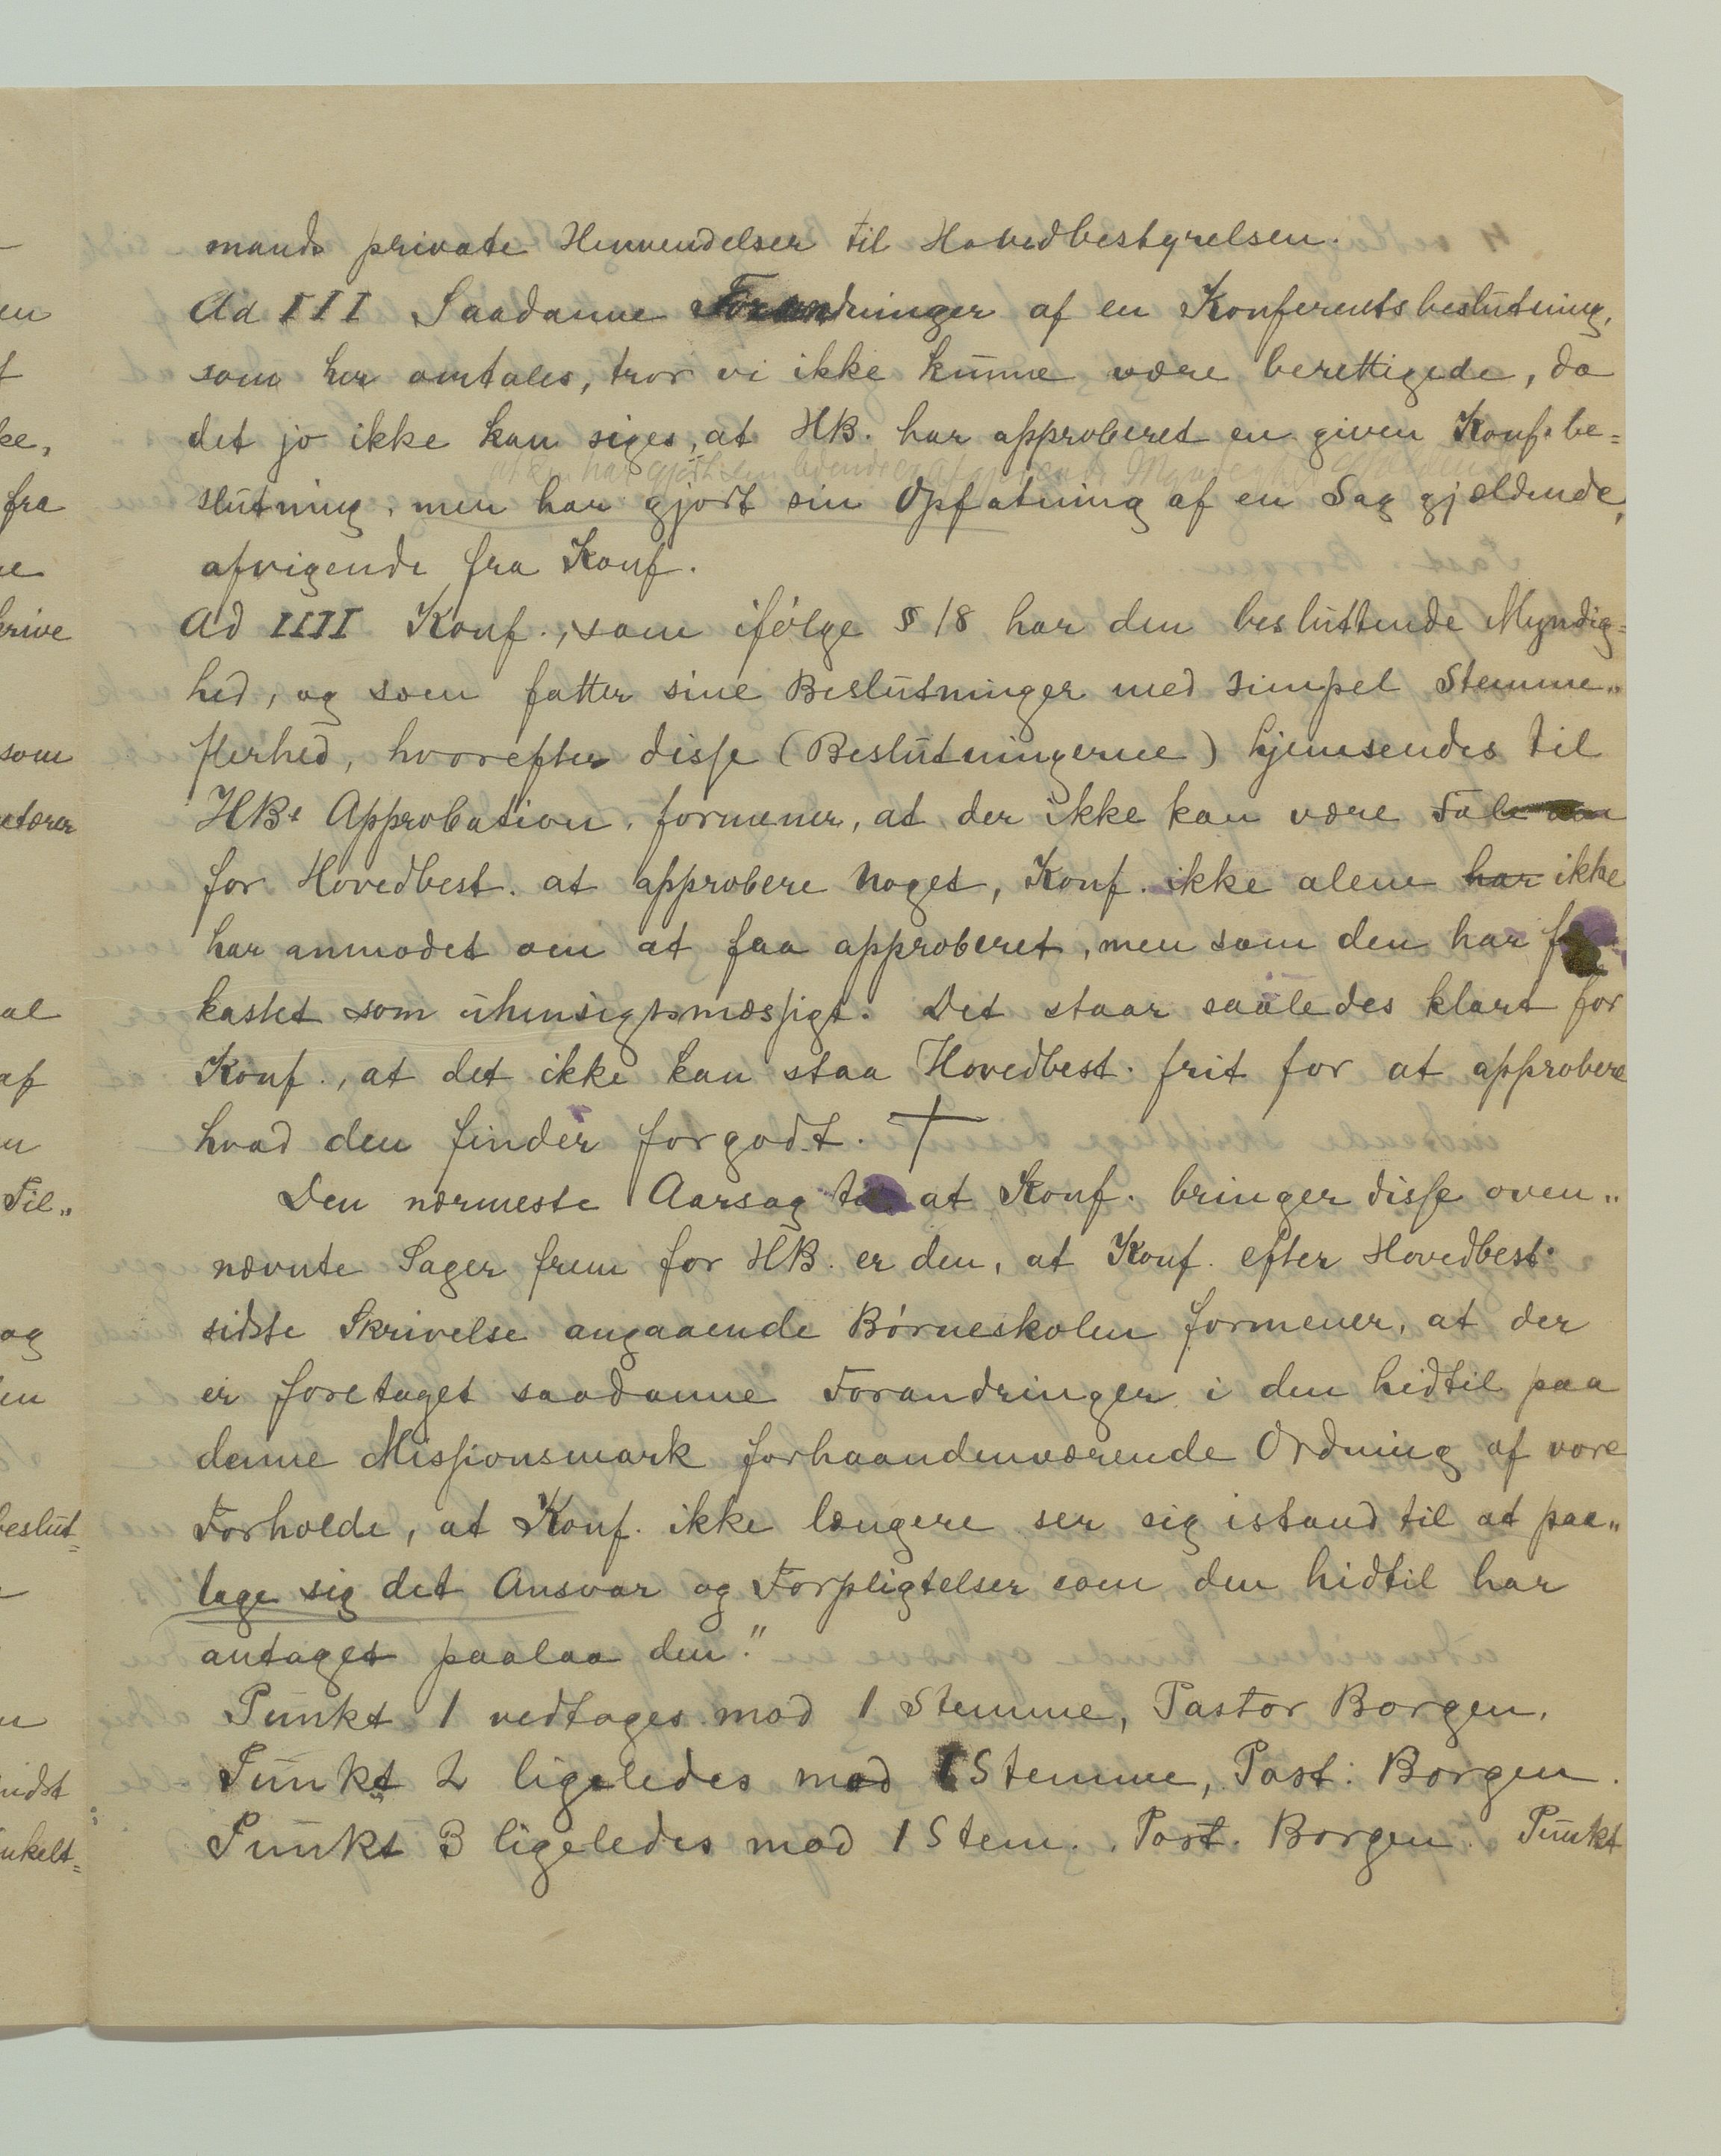 mands private Henvendelser til Hovedbestyrelsen.
Ad III Saadanne Forandringer af en Konferentsbeslutning,
som her omtales, tror vi ikke kunne være berettigede, da
det jo ikke kan siges, at HB. har approberet en given Konf. be=
slutning, men har gjort sin Opfatning af en Sag gjældende,
afvigende fra Konf.
Ad IIII Konf., som ifølge § 18 har den besluttende Myndig=
hed, og som fatter sine Beslutninger med simpel Stemme„
flerhed, hvorefter disse (Beslutningerne) hjemsendes til
HBs Approbation, formener, at der ikke kan være Tale om
for Hovedbest. at approbere noget, Konf. ikke alene har ikke
har anmodet om at faa approberet, men som den har
kastet som uhensigtsmæssigt. Det staar saaledes klart for
Konf., at det ikke kan staa Hovedbest. frit for at approbere
hvad den finder forgodt. †
Den nærmeste Aarsag at Konf. bringer disse oven„
nævnte Sager frem for HB. er den, at Konf. efter Hovedbest.
sidste Skrivelse angaaende Børneskolen formener, at der
er foretaget saadanne Forandringer i den hidtil paa
denne Missionsmark forhaandenværende Ordning af vore
Forholde, at Konf. ikke længere ser sig istand til at paa„
tage sig det Ansvar og Forpligtelser som den hidtil har
antaget paalaa den."
Punkt 1 vedtages mod 1 Stemme, Pastor Borgen.
Punkt 2 ligeledes mod 1 Stemme, Past. Borgen.
Punkt 3 ligeledes mod 1 Stem. Past. Borgen. Punkt